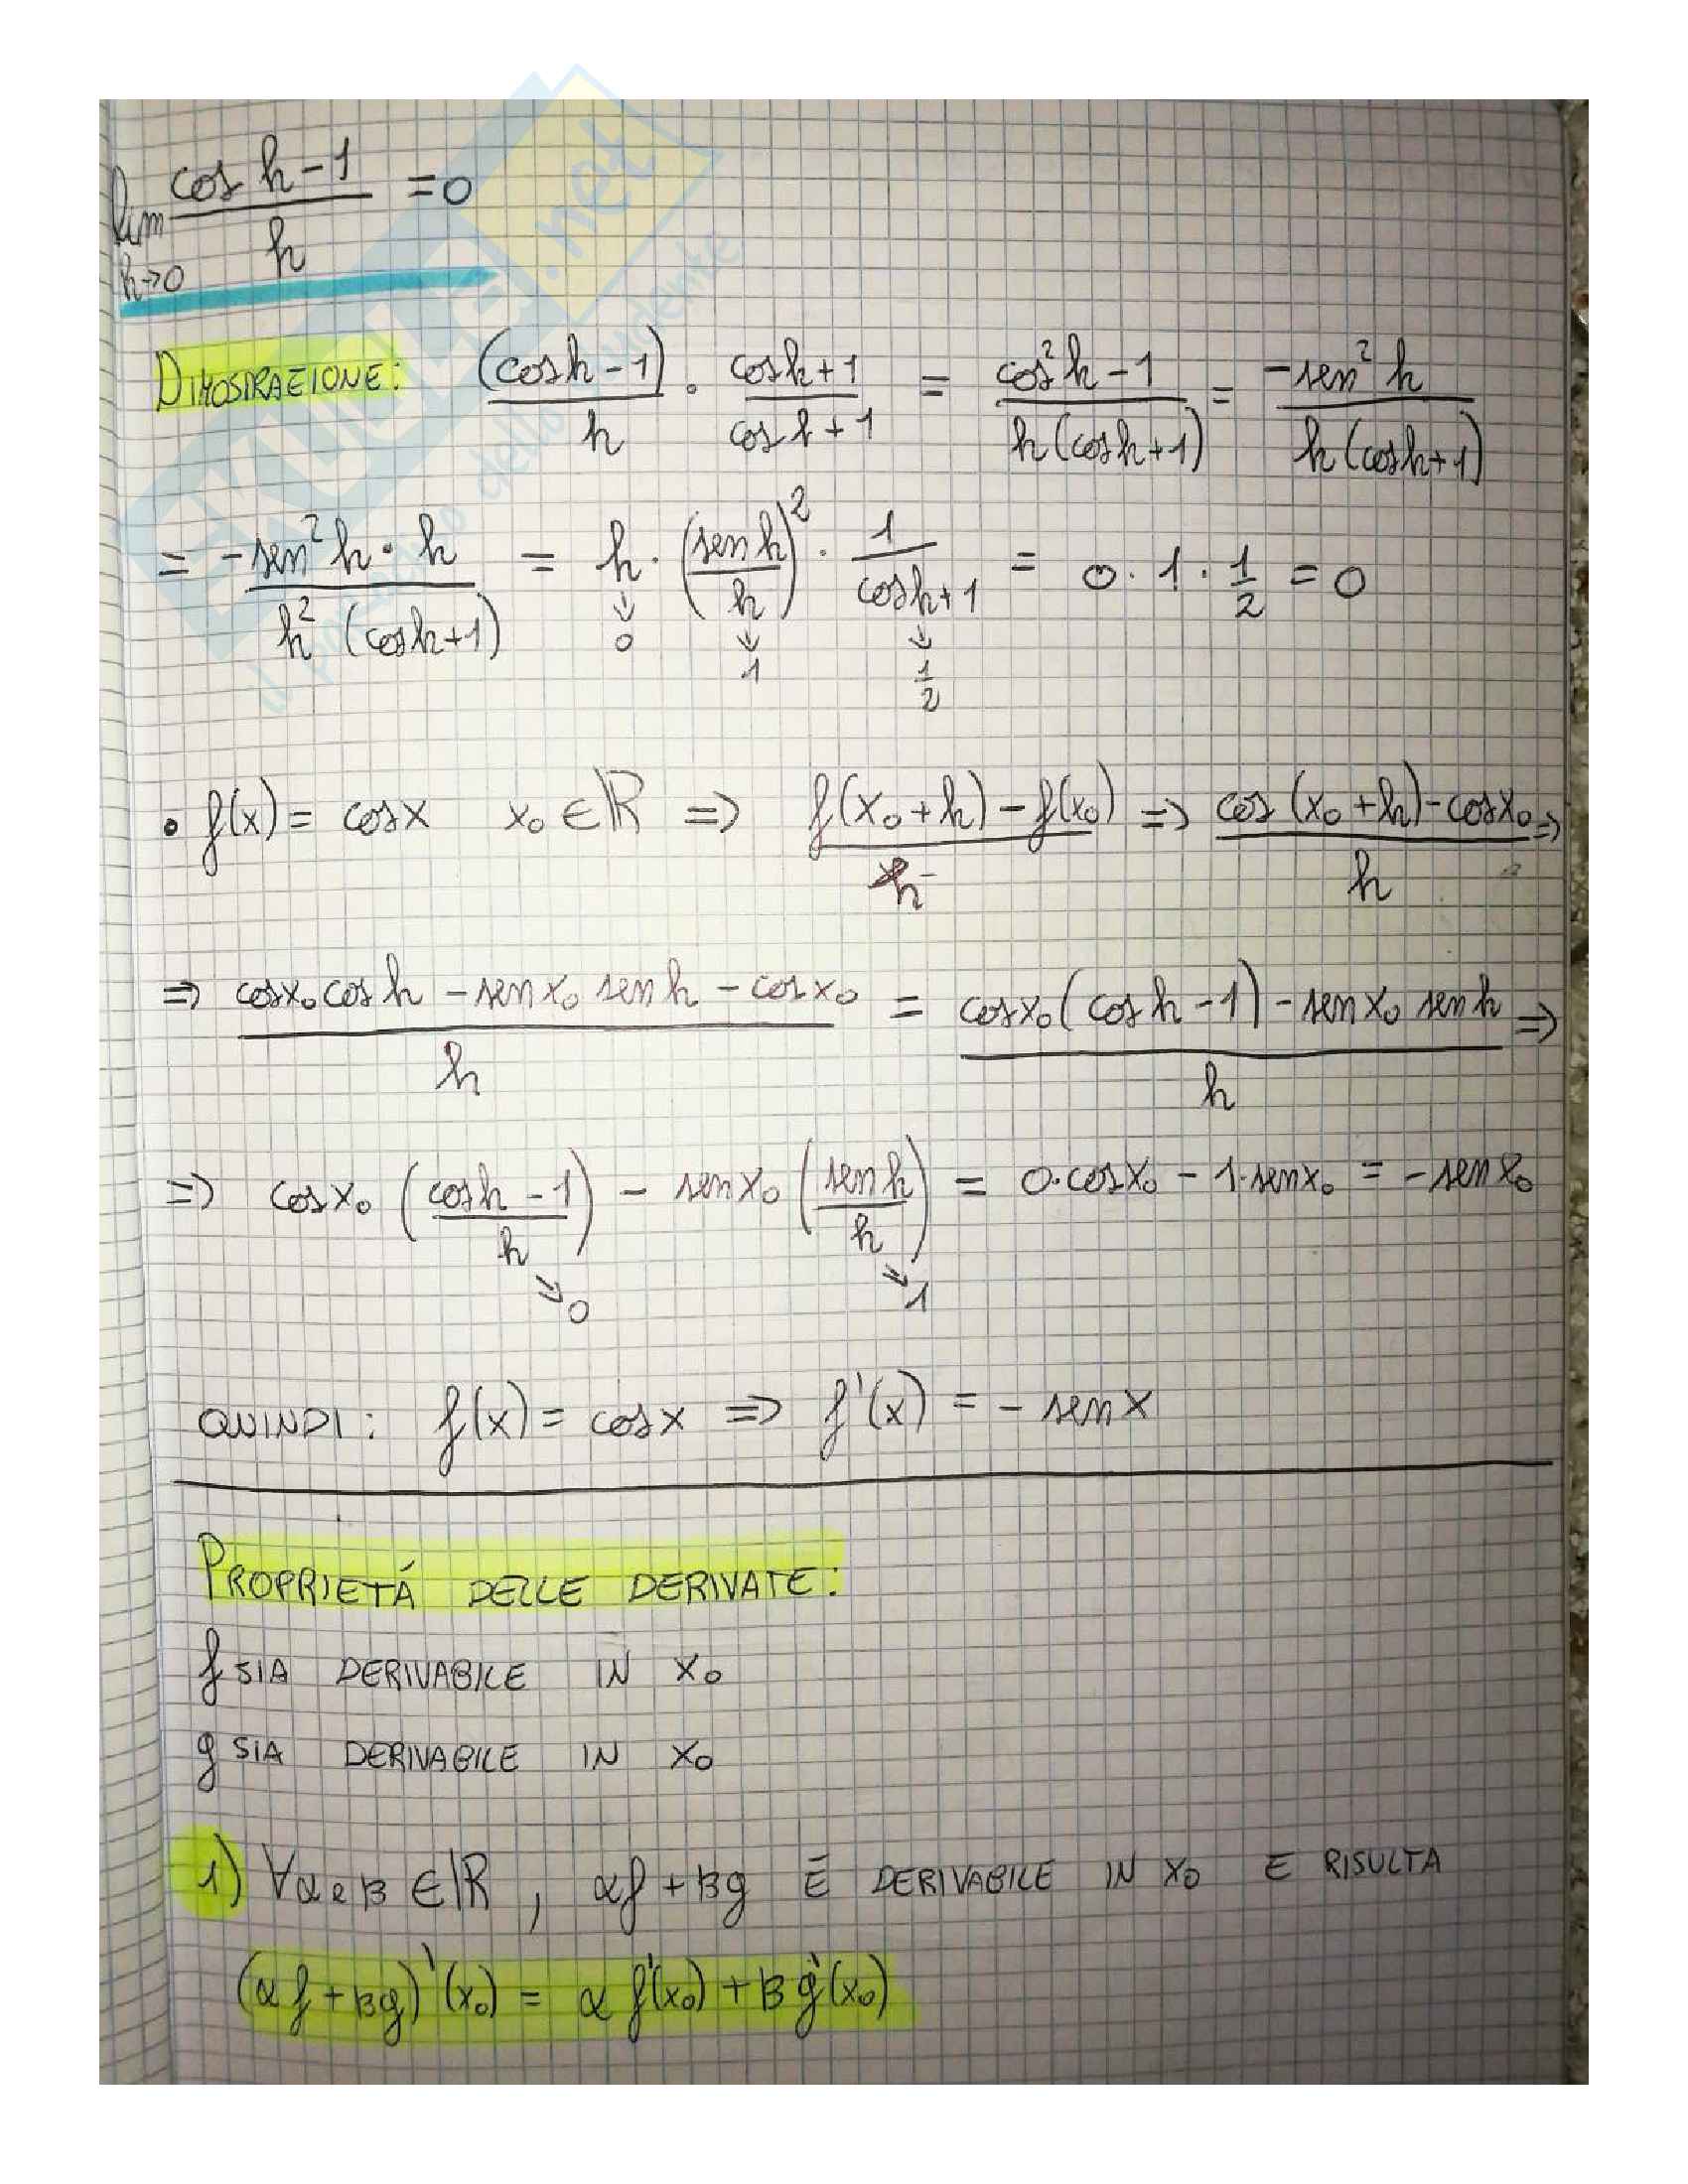 lim h→0 (cos h - 1)/h = 0
DIMOSTRAZIONE: (cos h - 1)/h · (cos h + 1)/(cos h + 1) = (cos² h - 1)/(h (cos h + 1)) = (-sen² h)/(h (cos h + 1))
= (-sen² h · h)/(h² (cos h + 1)) = h · (sen h/h)² · 1/(cos h + 1) = 0 · 1 · 1/2 = 0
↓ 0 ↓ 1 ↓ 1/2
• f(x) = cos x x₀ ∈ ℝ ⇒ (f(x₀ + h) - f(x₀))/h ⇒ (cos (x₀ + h) - cos x₀)/h ⇒
⇒ (cos x₀ cos h - sen x₀ sen h - cos x₀)/h = (cos x₀ (cos h - 1) - sen x₀ sen h)/h ⇒
⇒ cos x₀ ((cos h - 1)/h) - sen x₀ (sen h/h) = 0 · cos x₀ - 1 · sen x₀ = - sen x₀
↘ 0 ↘ 1
QUINDI: f(x) = cos x ⇒ f'(x) = - sen x
PROPRIETÁ DELLE DERIVATE:
f SIA DERIVABILE IN x₀
g SIA DERIVABILE IN x₀
1) ∀ α e β ∈ ℝ, αf + βg É DERIVABILE IN x₀ E RISULTA
(αf + βg)'(x₀) = α f'(x₀) + β g'(x₀)
.net